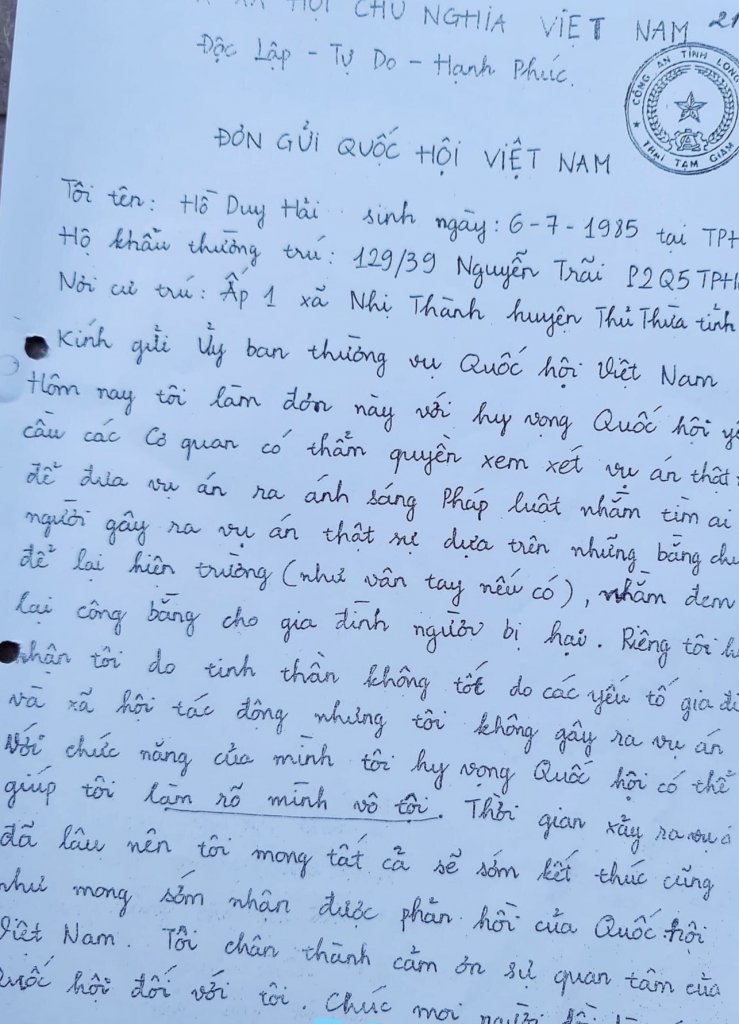 XÃ HỘI CHỦ NGHĨA VIỆT NAM 21
Độc Lập - Tự Do - Hạnh Phúc.
CÔNG AN TỈNH LONG
TRẠI TẠM GIAM
ĐƠN GỬI QUỐC HỘI VIỆT NAM
Tôi tên: Hồ Duy Hải sinh ngày: 6-7-1985 tại TPH
Hộ khẩu thường trú: 129/39 Nguyễn Trãi P2Q5 TPH
Nơi cư trú: Ấp 1 xã Nhị Thành huyện Thủ Thừa tỉnh
Kính gửi Ủy ban thường vụ Quốc hội Việt Nam
Hôm nay tôi làm đơn này với hy vọng Quốc hội yê
cầu các Cơ quan có thẩm quyền xem xét vụ án thật
để đưa vụ án ra ánh sáng Pháp luật nhằm tìm ai
người gây ra vụ án thật sự dựa trên những bằng chứ
để lại hiện trường (như vân tay nếu có), nhằm đem
lại công bằng cho gia đình người bị hại. Riêng tôi
nhận tôi do tinh thần không tốt do các yếu tố gia đì
và xã hội tác động nhưng tôi không gây ra vụ án
Với chức năng của mình tôi hy vọng Quốc hội có thể
giúp tôi làm rõ mình vô tội. Thời gian xẩy ra vụ á
đã lâu nên tôi mong tất cả sẽ sớm kết thúc cũng
như mong sớm nhận được phản hồi của Quốc hội
Việt Nam. Tôi chân thành cảm ơn sự quan tâm của
Quốc hội đối với tôi. Chúc mọi người